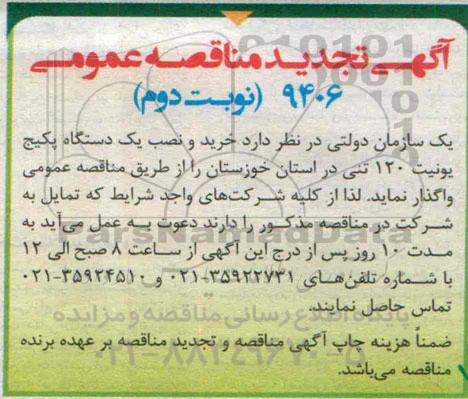 آگهی تجدید مناقصه عمومی
۹۴۰۶ (نوبت دوم)
یک سازمان دولتی در نظر دارد خرید و نصب یک دستگاه پکیج
یونیت ۱۲۰ تنی در استان خوزستان را از طریق مناقصه عمومی
واگذار نماید. لذا از کلیه شرکت‌های واجد شرایط که تمایل به
شرکت در مناقصه مذکور را دارند دعوت به عمل می‌آید به
مدت ۱۰ روز پس از درج این آگهی از ساعت ۸ صبح الی ۱۲
با شماره تلفن‌های ۳۵۹۲۲۷۳۱-۰۲۱ و ۳۵۹۲۴۵۱۰-۰۲۱
تماس حاصل نمایند.
ضمناً هزینه چاپ آگهی مناقصه و تجدید مناقصه بر عهده برنده
مناقصه می‌باشد.
ParsNamadData
پایگاه اطلاع رسانی مناقصه و مزایده
۰۲۱-۸۸۳۴۹۶۷۰-۵